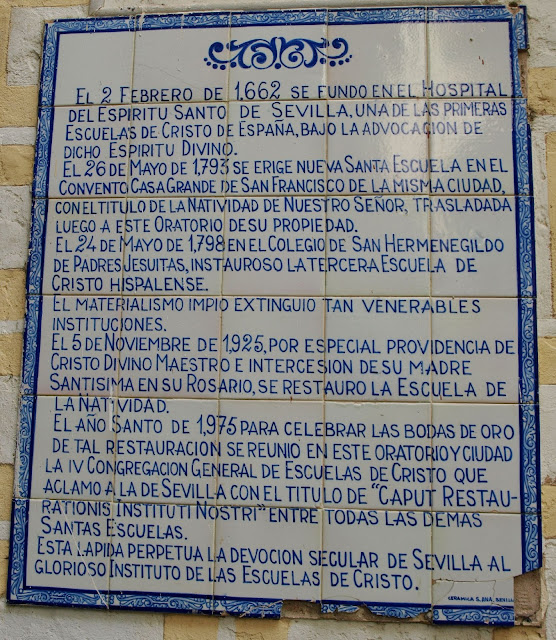 EL 2 FEBRERO DE 1.662 SE FUNDO EN EL HOSPITAL
DEL ESPIRITU SANTO DE SEVILLA, UNA DE LAS PRIMERAS
ESCUELAS DE CRISTO DE ESPAÑA, BAJO LA ADVOCACION DE
DICHO ESPIRITU DIVINO.
EL 26 DE MAYO DE 1.793 SE ERIGE NUEVA SANTA ESCUELA EN EL
CONVENTO CASA GRANDE DE SAN FRANCISCO DE LA MISMA CIUDAD,
CON EL TITULO DE LA NATIVIDAD DE NUESTRO SEÑOR, TRASLADADA
LUEGO A ESTE ORATORIO DE SU PROPIEDAD.
EL 24 DE MAYO DE 1.798 EN EL COLEGIO DE SAN HERMENEGILDO
DE PADRES JESUITAS, INSTAUROSO LA TERCERA ESCUELA DE
CRISTO HISPALENSE.
EL MATERIALISMO IMPIO EXTINGUIO TAN VENERABLES
INSTITUCIONES.
EL 5 DE NOVIEMBRE DE 1,925, POR ESPECIAL PROVIDENCIA DE
CRISTO DIVINO MAESTRO E INTERCESION DE SU MADRE
SANTISIMA EN SU ROSARIO, SE RESTAURO LA ESCUELA DE
LA NATIVIDAD.
EL AÑO SANTO DE 1,975 PARA CELEBRAR LAS BODAS DE ORO
DE TAL RESTAURACION SE REUNIO EN ESTE ORATORIO Y CIUDAD
LA IV CONGREGACION GENERAL DE ESCUELAS DE CRISTO QUE
ACLAMO A LA DE SEVILLA CON EL TITULO DE "CAPUT RESTAU-
RATIONIS INSTITUTI NOSTRI" ENTRE TODAS LAS DEMAS
SANTAS ESCUELAS.
ESTA LAPIDA PERPETUA LA DEVOCION SECULAR DE SEVILLA AL
GLORIOSO INSTITUTO DE LAS ESCUELAS DE CRISTO.
CERAMICA S. ANA. SEVILL